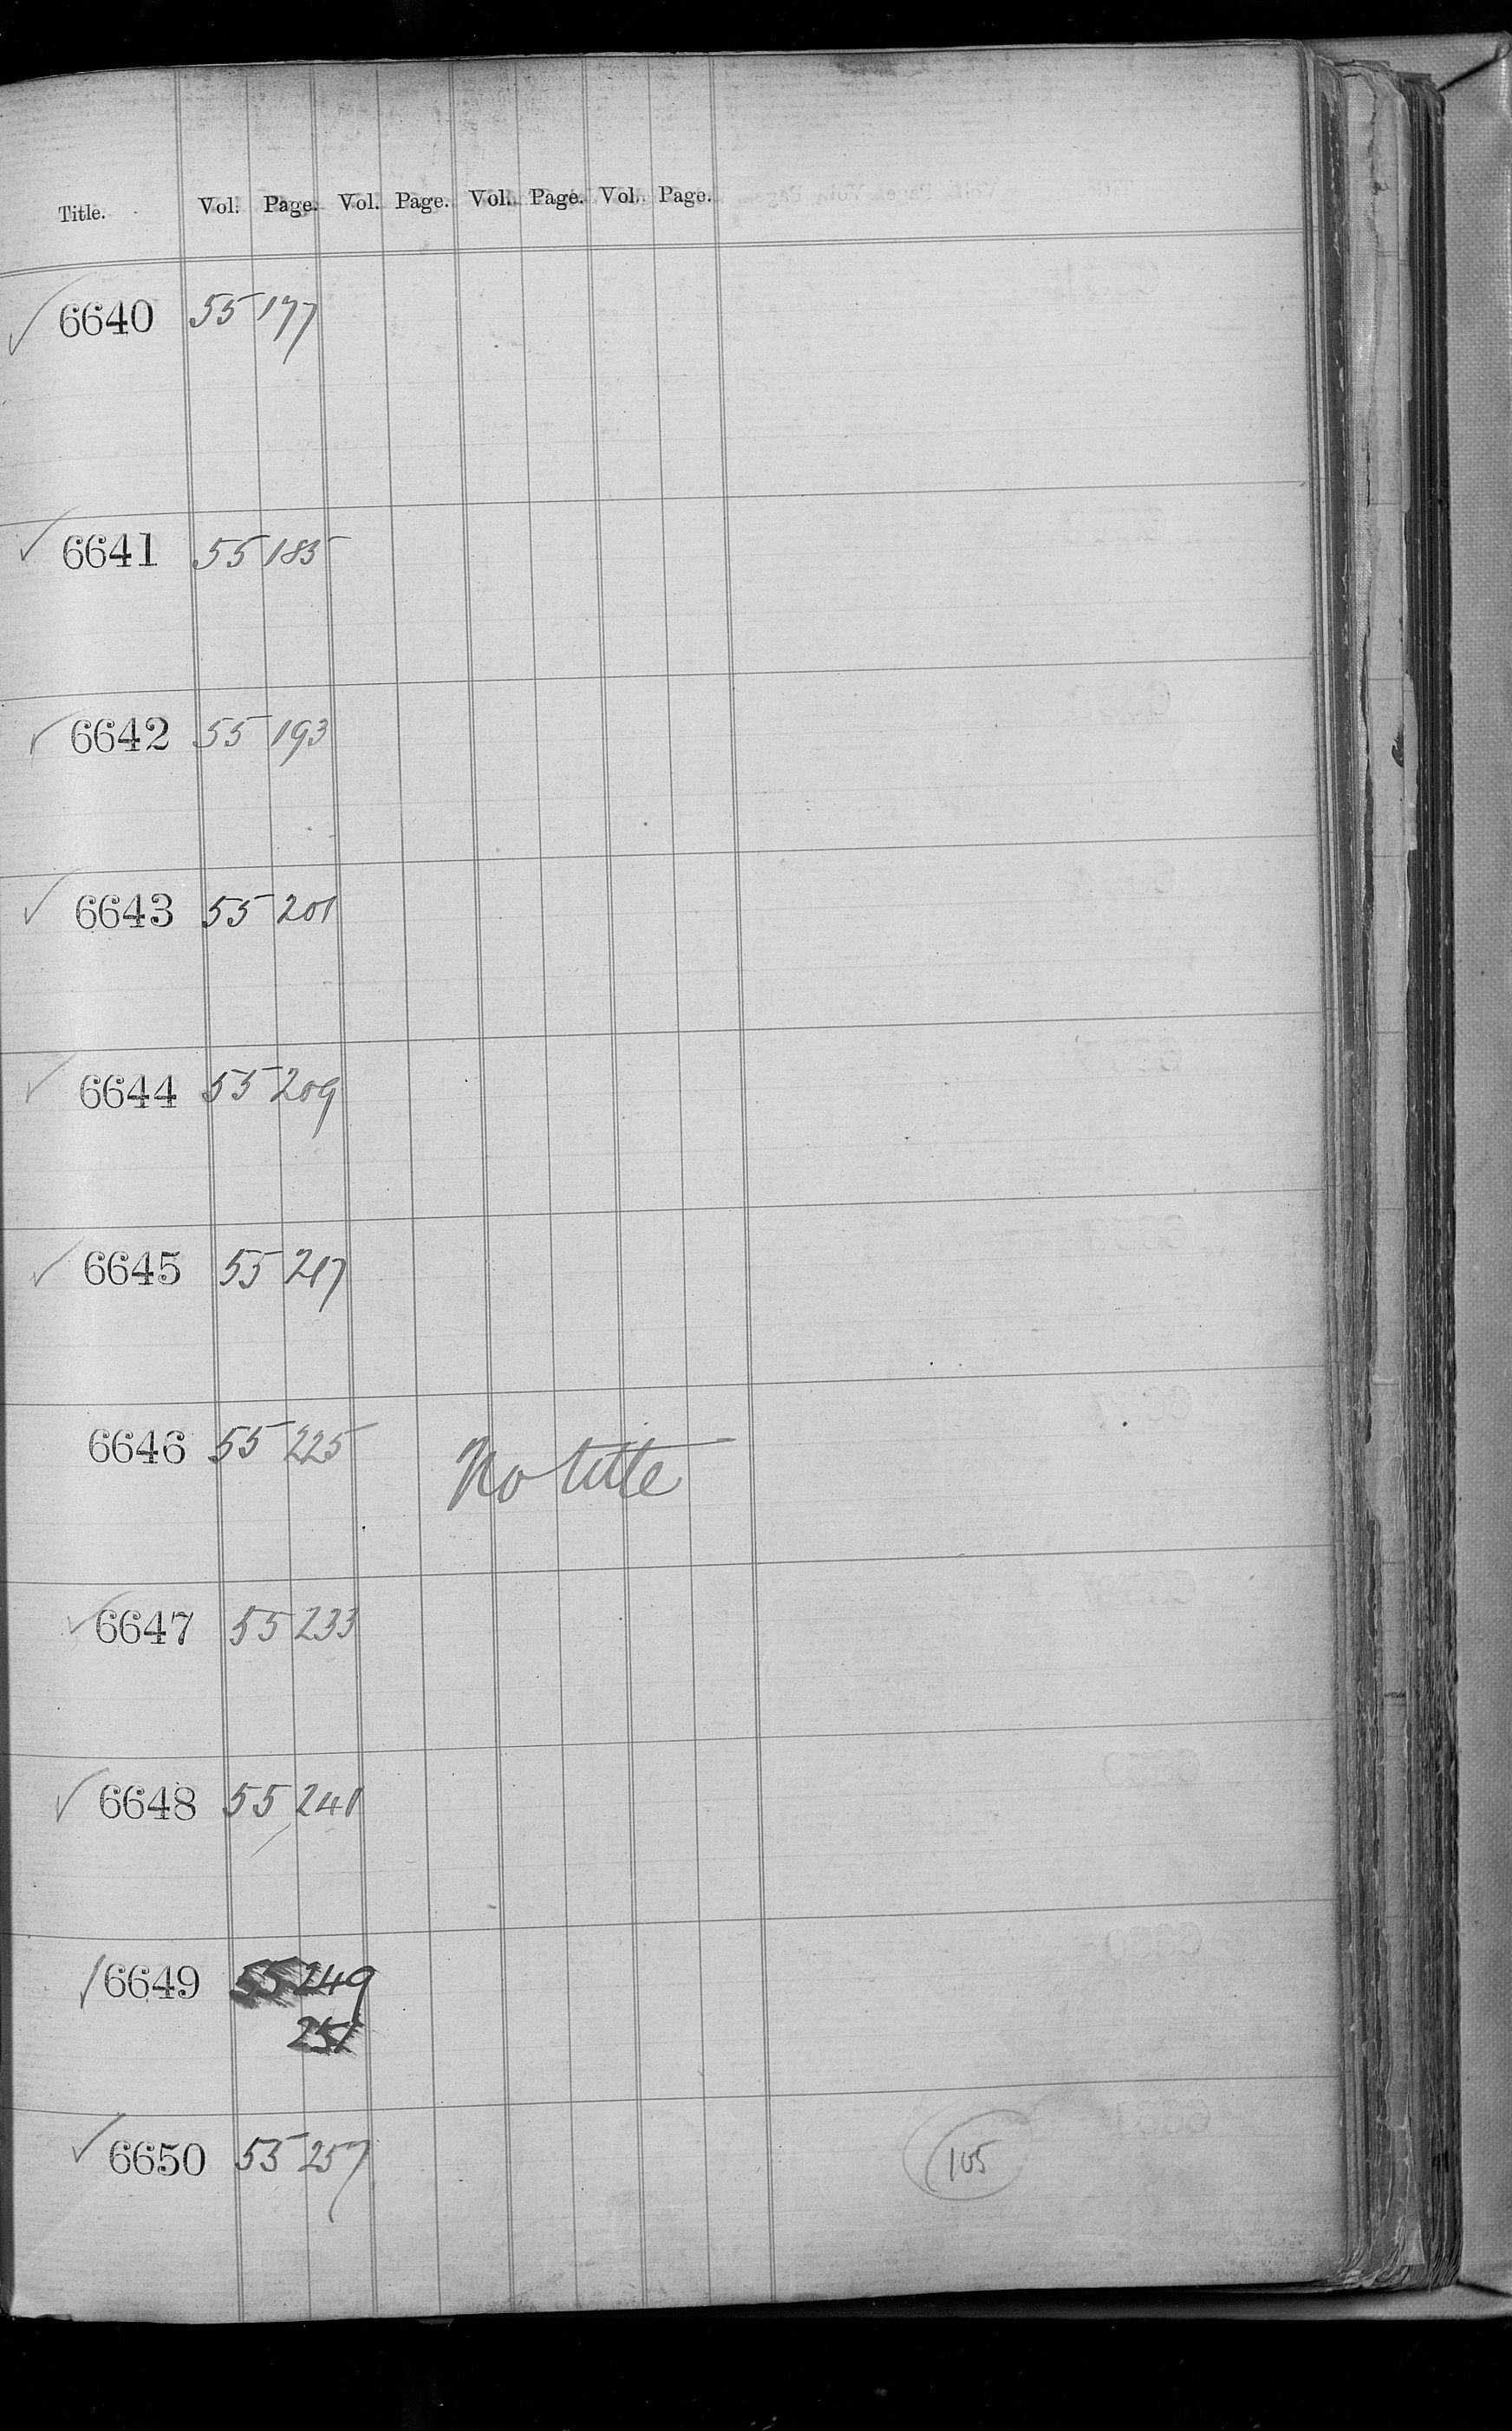 Title. Vol. Page. Vol. Page. Vol. Page. Vol. Page.
6640 55 177
6641 55 185
6642 55 193
6643 55 201
6644 55 209
6645 55 217
6646 55 225 No title
6647 55 233
6648 55 241
6649 55 249
251
6650 55 257
105